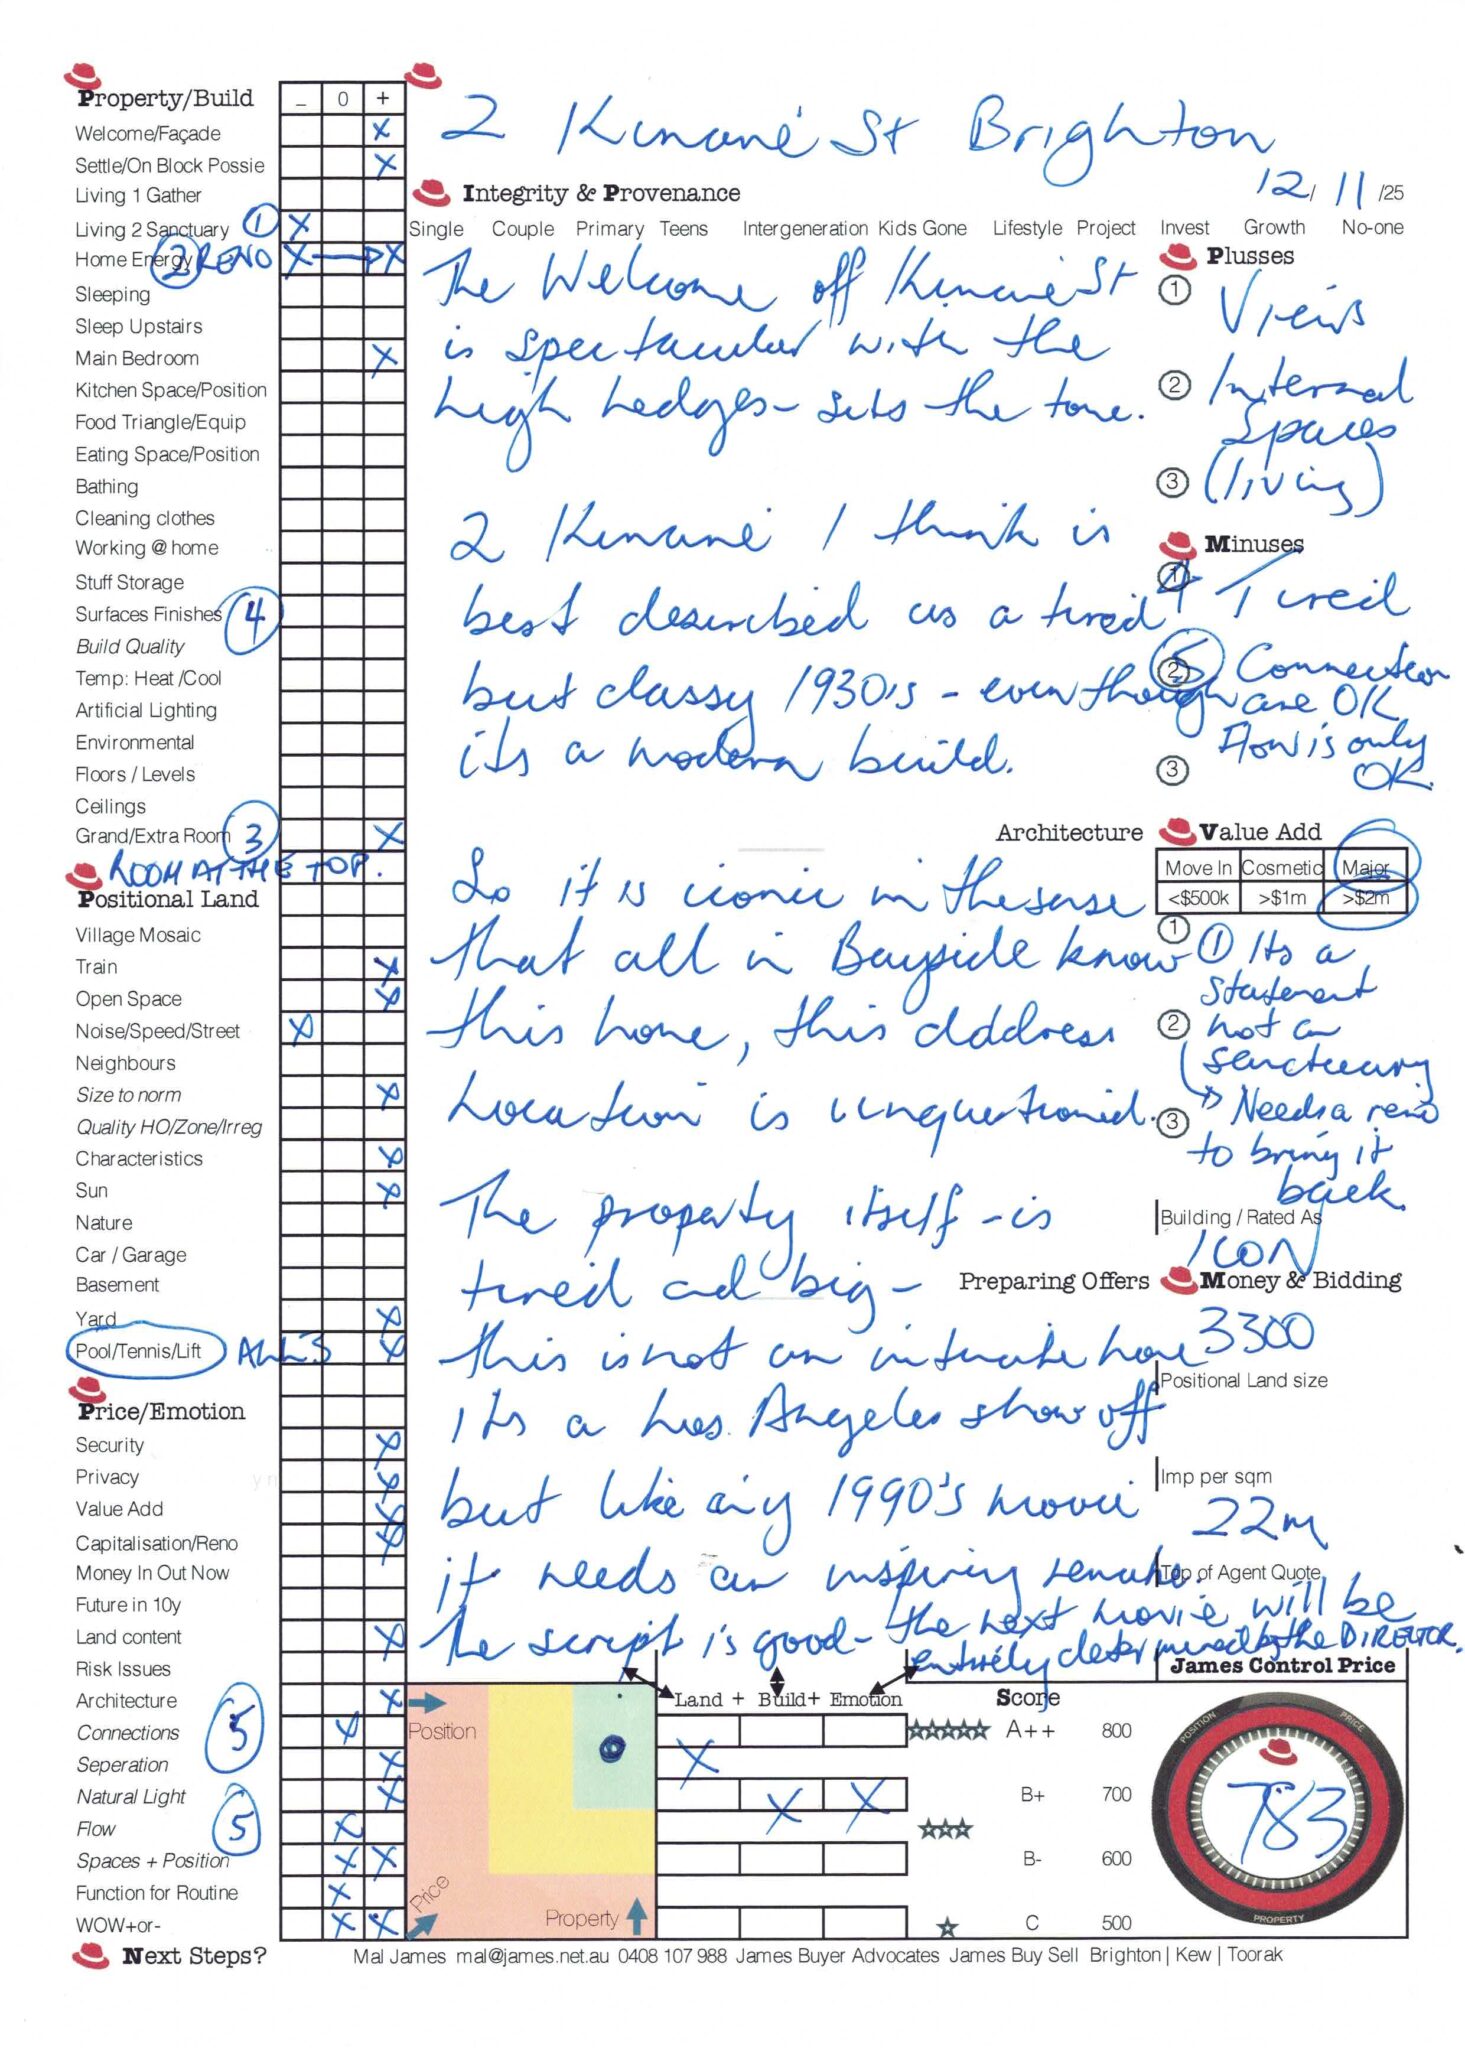 Property/Build – 0 +
Welcome/Façade X
Settle/On Block Possie X
Living 1 Gather
Living 2 Sanctuary 1 X
Home Energy 2 RENO X → X
Sleeping
Sleep Upstairs
Main Bedroom X
Kitchen Space/Position
Food Triangle/Equip
Eating Space/Position
Bathing
Cleaning clothes
Working @ home
Stuff Storage
Surfaces Finishes 4
Build Quality
Temp: Heat /Cool
Artificial Lighting
Environmental
Floors / Levels
Ceilings
Grand/Extra Room 3 X
ROOM AT THE TOP.
Positional Land
Village Mosaic
Train X
Open Space X
Noise/Speed/Street X
Neighbours
Size to norm X
Quality HO/Zone/Irreg
Characteristics X
Sun X
Nature
Car / Garage
Basement
Yard X
Pool/Tennis/Lift ALL 3 X
Price/Emotion
Security X
Privacy X
Value Add X
Capitalisation/Reno X
Money In Out Now
Future in 10y
Land content X
Risk Issues
Architecture X
Connections 5 X
Seperation X
Natural Light X
Flow 5 X
Spaces + Position X X
Function for Routine X
WOW+or- X X
Next Steps?
2 Kinane St Brighton
Integrity & Provenance 12/ 11 /25
Single Couple Primary Teens Intergeneration Kids Gone Lifestyle Project Invest Growth No-one
The Welcome off Kinane St
is spectacular with the
high hedges - sets the tone.
2 Kinane I think is
best described as a tired
but classy 1930's - even though
it's a modern build.
So it is iconic in the sense
that all in Bayside know
this home, this address
Location is unquestioned.
The property itself - is
tired and big -
this is not an intimate home
its a Los. Angeles show off
but like any 1990's movie
it needs an inspiring remake.
The script is good - the next movie will be
entirely determined by the DIRECTOR.
Plusses
1 Views
2 Internal
Spaces
3 (living)
Minuses
1 4 Tired
2 5 Connection
are OK
Flow is only
3 OK.
Architecture Value Add
Move In Cosmetic Major
<$500k >$1m >$2m
1 1 Its a
statement
2 not a
sanctuary
→ Needs a reno
3 to bring it
back
Building / Rated As
ICON
Preparing Offers Money & Bidding
3300
Positional Land size
Imp per sqm
22m
Top of Agent Quote
James Control Price
Position
Price
Property
Land + Build+ Emotion Score
X
X X
A++ 800
B+ 700
B- 600
C 500
POSITION PRICE
783
PROPERTY
Mal James mal@james.net.au 0408 107 988 James Buyer Advocates James Buy Sell Brighton | Kew | Toorak